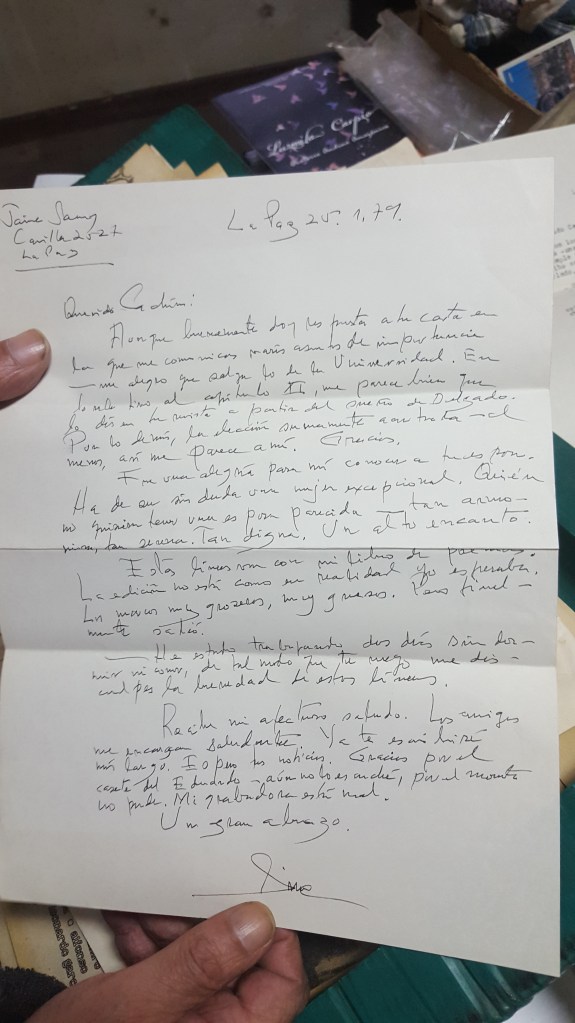 Casilla 2527
La Paz
La Paz 25. 1. 79.
Querido
Aunque brevemente doy respuesta a tu carta en
la que me comunicas varios asuntos de importancia
— me alegro que salga lo de la Universidad. En
al capítulo II, me parece bien que
lo des en tu revista a partir del sueño de Delgado.
Por lo demás, la elección sumamente
menos, así me parece a mí. Gracias.
Fue una alegría para mí conocer a tu
Ha de ser sin duda una mujer excepcional. Quién
no quisiera tener una esposa parecida — tan armo-
niosa, tan serena. Tan digna. Un alto encanto.
Estas líneas van con mi libro de poemas.
La edición no está como en realidad yo esperaba.
Los marcos muy groseros, muy gruesos. Pero final-
mente salió.
— He estado trabajando dos días sin dor-
mir ni comer, de tal modo que te ruego me dis-
culpes la brevedad de estas líneas.
Recibe mi afectuoso saludo. Los amigos
me encargan saludarte. Ya te escribiré
más largo. Espero tus noticias. Gracias por el
casete del Eduardo — aún no lo escuché, por el momento
no puedo. Mi grabadora está mal.
Un gran abrazo.